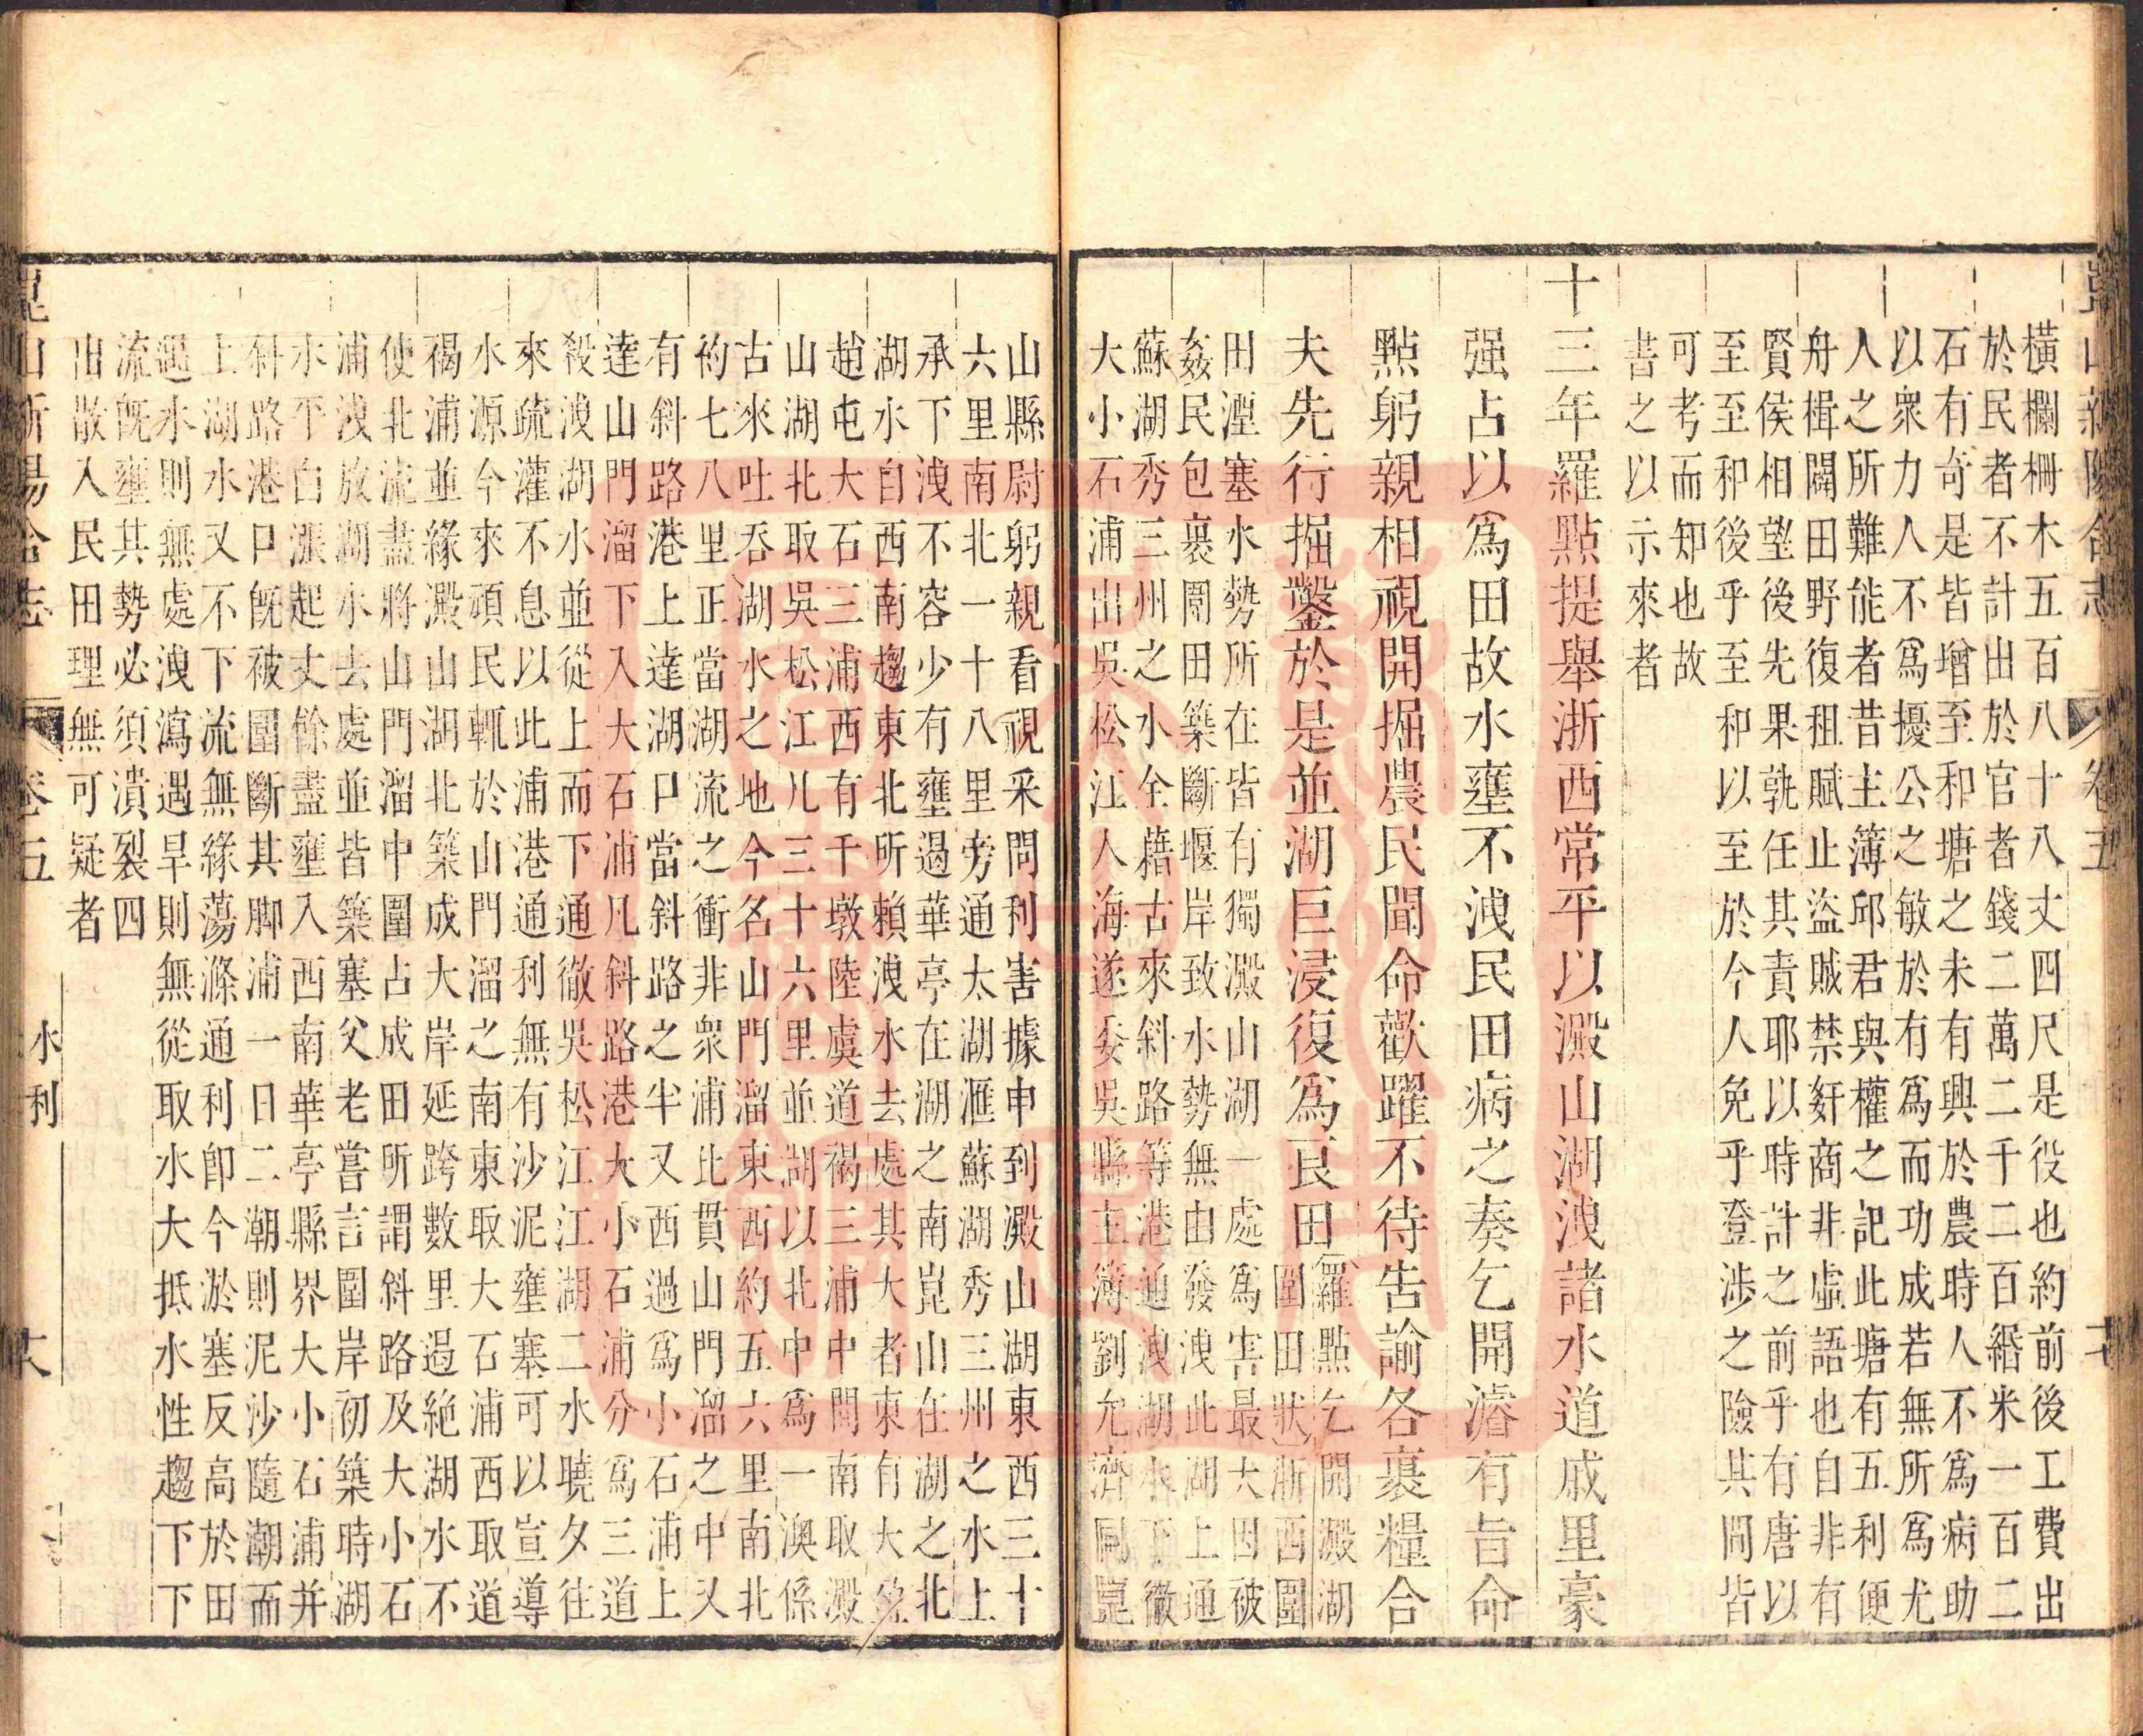 橫欄柵木五百八十八丈四尺是役也約前後工費出
於民者不計出於官者錢二萬二千二百緡米一百二
石有奇是皆增至和塘之未有興於農時人不爲病助
以衆力人不爲擾公之敏於有爲而功成若無所爲尤
人之所難能者昔主簿邱君與權之記此塘有五利便
舟楫闢田野復租賦止盜賊禁姧商非虛語也自非有
賢侯相望後先果孰任其責耶以時計之前乎有唐以
至至和後乎至和以至於今人免乎登涉之險其間皆
可考而知也故
書之以示來者
十三年羅點提舉浙西常平以澱山湖洩諸水道戚里豪
强占以爲田故水壅不洩民田病之奏乞開濬有旨命
點躬親相視開掘農民聞命歡躍不待告諭各裹糧合
夫先行掘鑿於是並湖巨浸復爲良田羅點乞開澱湖
圍田狀浙西圍
田湮塞水勢所在皆有獨澱山湖一處爲害最大因破
姦民包裹圍田築斷堰岸致水勢無由發洩此湖上通
蘇湖秀三州之水全藉古來斜路等港通洩湖水下徹
大小石浦出吳松江入海遂委吳縣主簿劉允濟同崑
山縣尉躬親看視采問利害據申到澱山湖東西三十
六里南北一十八里旁通太湖滙蘇湖秀三州之水上
承下洩不容少有壅遏華亭在湖之南崑山在湖之北
湖水自西南趨東北所賴洩水去處其大者東有大盈
趙屯大石三浦西有千墩陸虞道褐三浦中間南取澱
山湖北取吳松江凡三十六里並湖以北中爲一澳係
古來吐吞湖水之地今名山門溜東西約五六里南北
約七八里正當湖流之衝非衆浦比貫山門溜之中又
有斜路港上達湖口當斜路之半又西過爲小石浦上
達山門溜下入大石浦凡斜路港大小石浦分爲三道
殺洩湖水並從上而下通徹吳松江江湖二水曉夕往
來疏灌不息以此浦港通利無有沙泥壅塞可以宣導
水源今來頑民輒於山門溜之南東取大石浦西取道
褐浦並緣澱山湖北築成大岸延跨數里遏絶湖水不
使北流盡將山門溜中圍占成田所謂斜路及大小石
浦洩放湖水去處並皆築塞父老嘗言圍岸初築時湖
水平白漲起丈餘盡壅入西南華亭縣界大小石浦并
斜路港口旣被圍斷其脚浦一日二潮則泥沙隨潮而
上湖水又不下流無緣蕩滌通利卽今淤塞反高於田
遇水則無處洩瀉遇旱則無從取水大抵水性趨下下
流旣壅其勢必須潰裂四
出散入民田理無可疑者
崑山新陽合志
卷五
水利
大